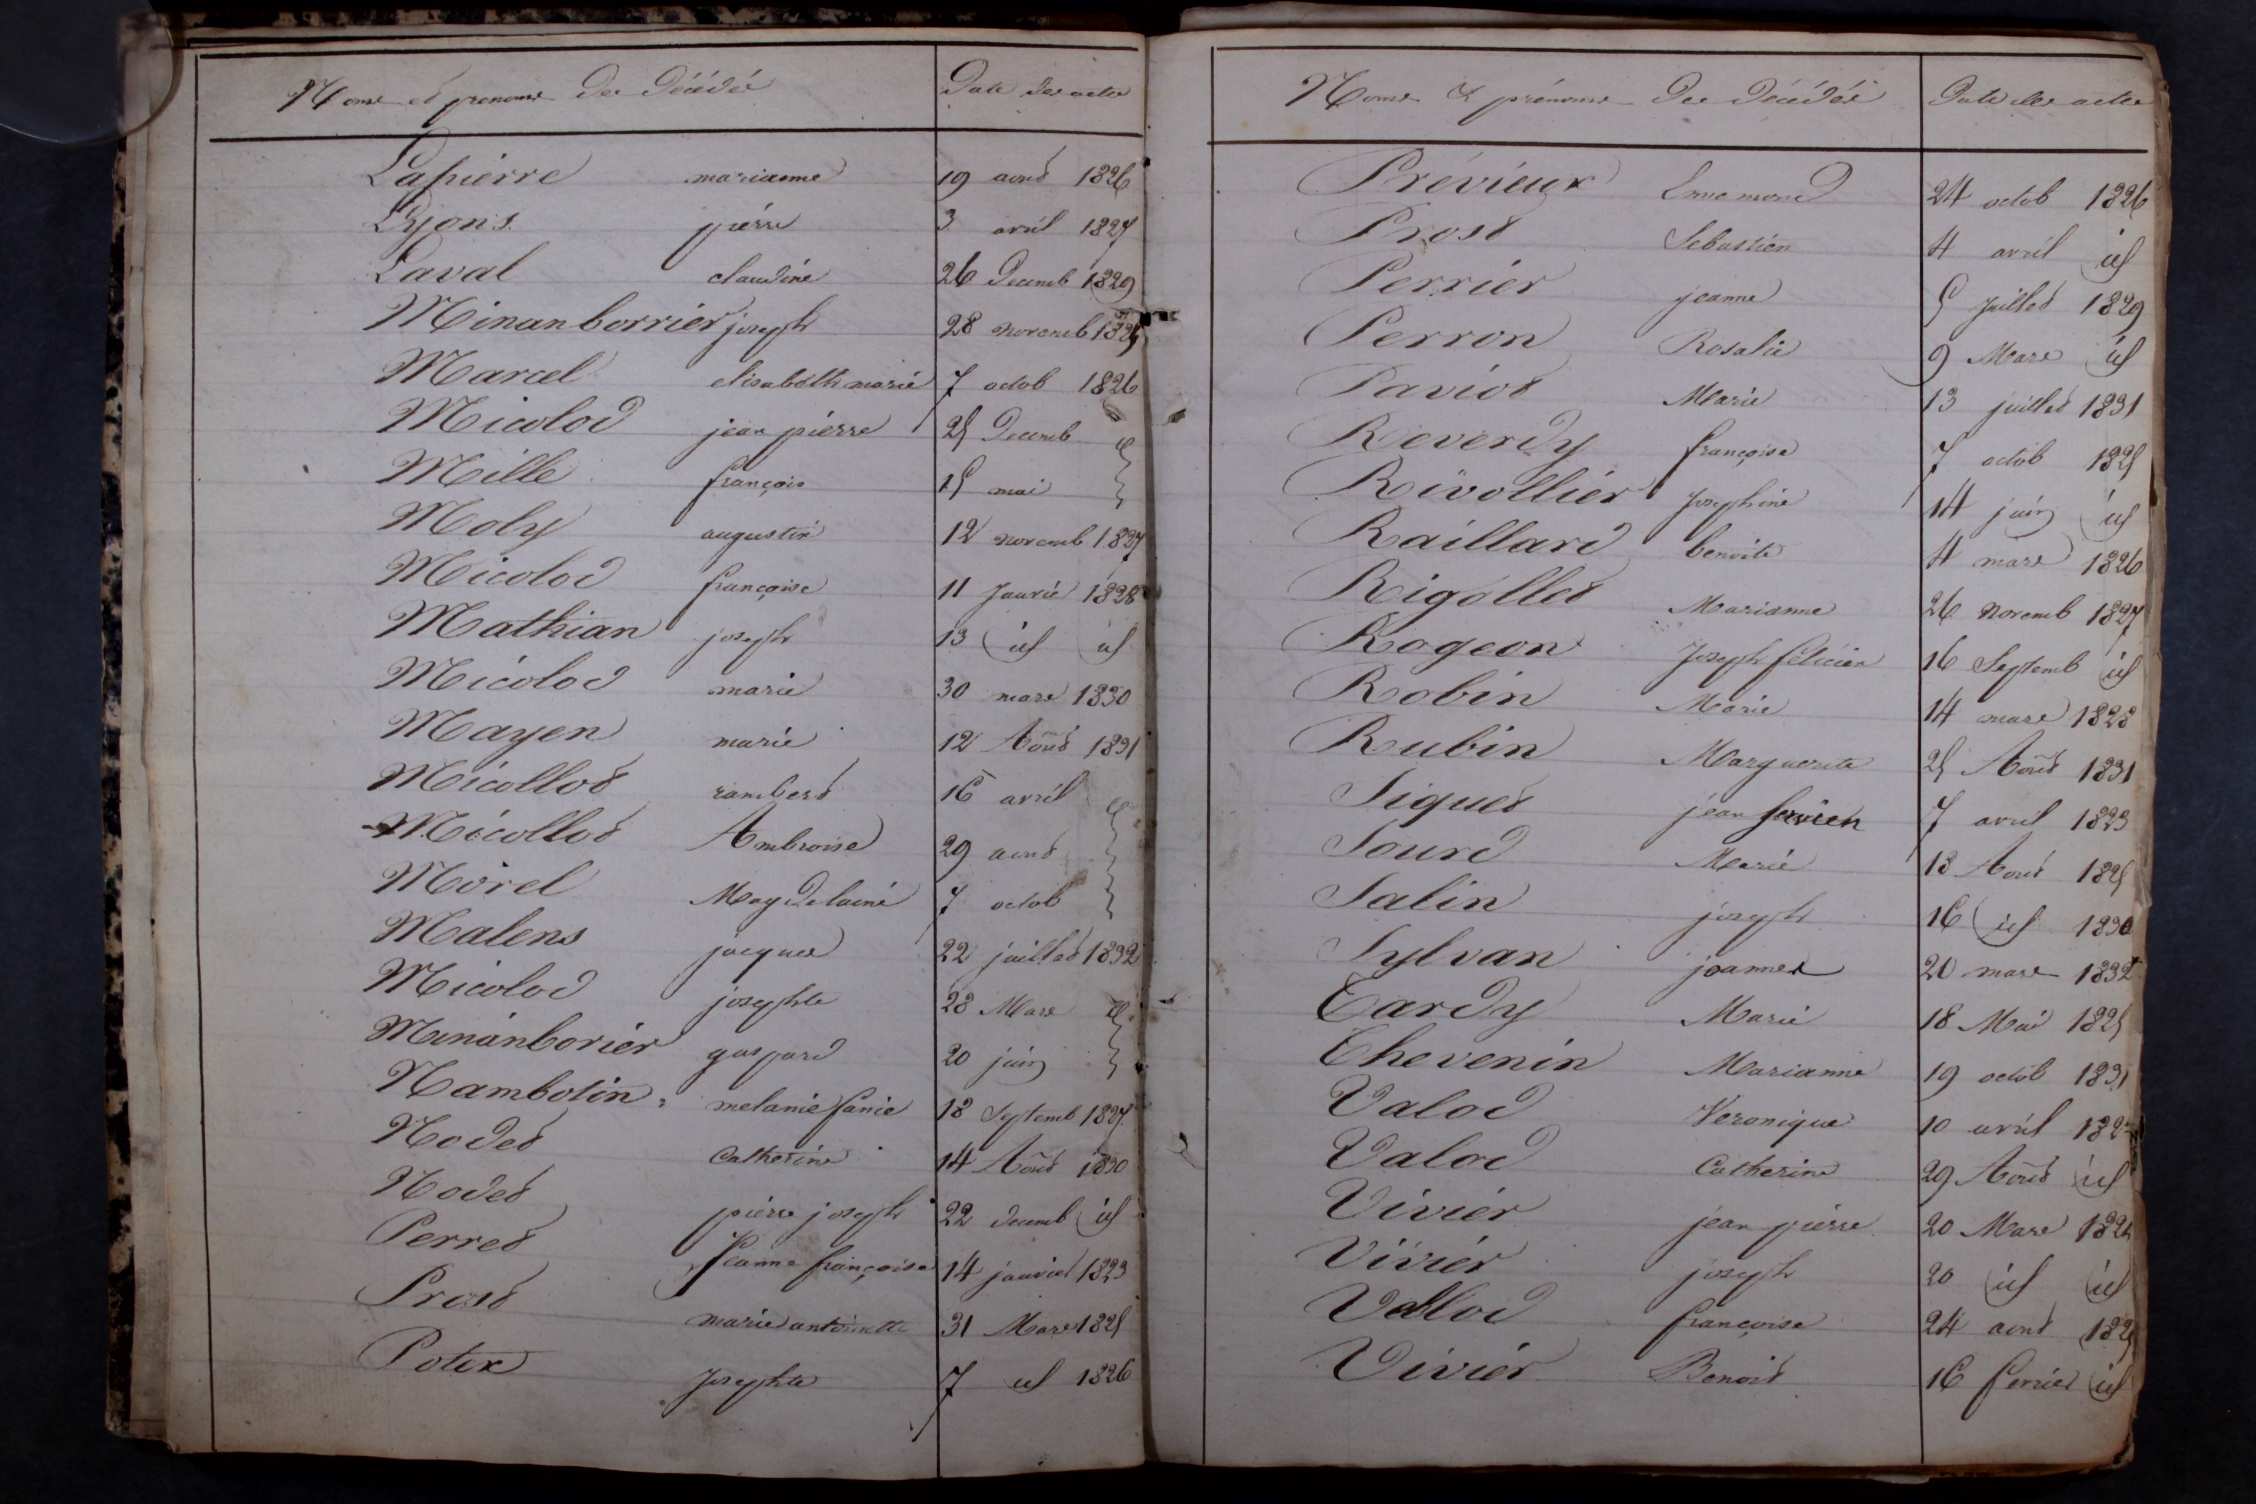 Noms et prenoms des décédés Date des actes
Lapierre marianne 19 aout 1826
Lyons pierre 3 avril 1827
Laval claudine 26 Decemb 1829
Minanborrier joseph 28 novemb 1825
Marcel elisabeth marie 7 octob 1826
Micolod jean pierre 25 Decemb id
Mille françois 15 mai
Moly augustin 12 novemb 1827
Micolod françoise 11 Janvié 1828
Mathian joseph 13 id id
Micolod marie 30 mars 1830
Mayen marie 12 Aout 1831
Micollod rambert 16 avril id
Micollod Ambroise 29 aout
Morel Magdelaine 7 octob
Malens jacques 22 juillet 1832
Micolod josephte 28 Mars id
Minanborier gaspard 20 juin
Nambotin melanie fanie 18 Septemb 1827
Nodet Catherine 14 Aout 1830
Nodet pierre joseph 22 decemb id
Perret Jeanne françoise 14 janvier 1823
Prost marie antoinette 31 Mars 1825
Potex Josephte 7 id 1826
Noms & prénoms des Décédés Date des actes
Prévieux Ennemond 24 octob 1826
Prost Sebastien 4 avril id
Perrier jeanne 5 Juillet 1829
Perron Rosalie 9 Mars id
Paviot Marie 13 juillet 1831
Reverdy françoise 7 octob 1825
Rivollier Josephine 14 juin id
Raillard benoite 4 mars 1826
Rigollet Marianne 26 Novemb 1827
Rogeon Joseph felicien 16 Septemb id
Robin Marie 14 mars 1828
Rubin Marguerite 25 Aout 1831
Siquet jean 7 avril 1823
Sourd Marie 13 Aout 1825
Salin joseph 16 id 1830
Sylvan joanne 20 mars 1832
Tardy Marie 18 Mai 1825
Thevenin Marianne 19 octob 1831
Valod Veronique 10 avril
Valod Catherine 29 Aout id
Vivier jean pierre 20 Mars
Vivier joseph 20 id id
Vallod françoise 24 aout 1825
Vivier Benoit 16 fevrier id